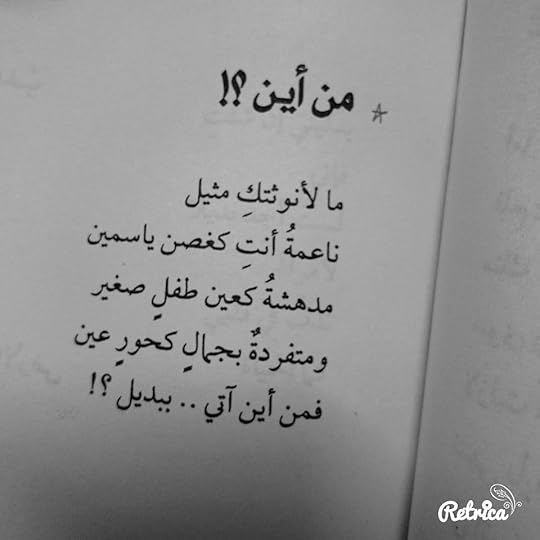 من أين ؟!
ما لأنوثتكِ مثيل
ناعمةُ أنتِ كغصن ياسمين
مدهشةُ كعين طفلٍ صغير
ومتفردةٌ بجمالٍ كحورٍ عين
فمن أين آتي .. ببديل ؟!
Retrica